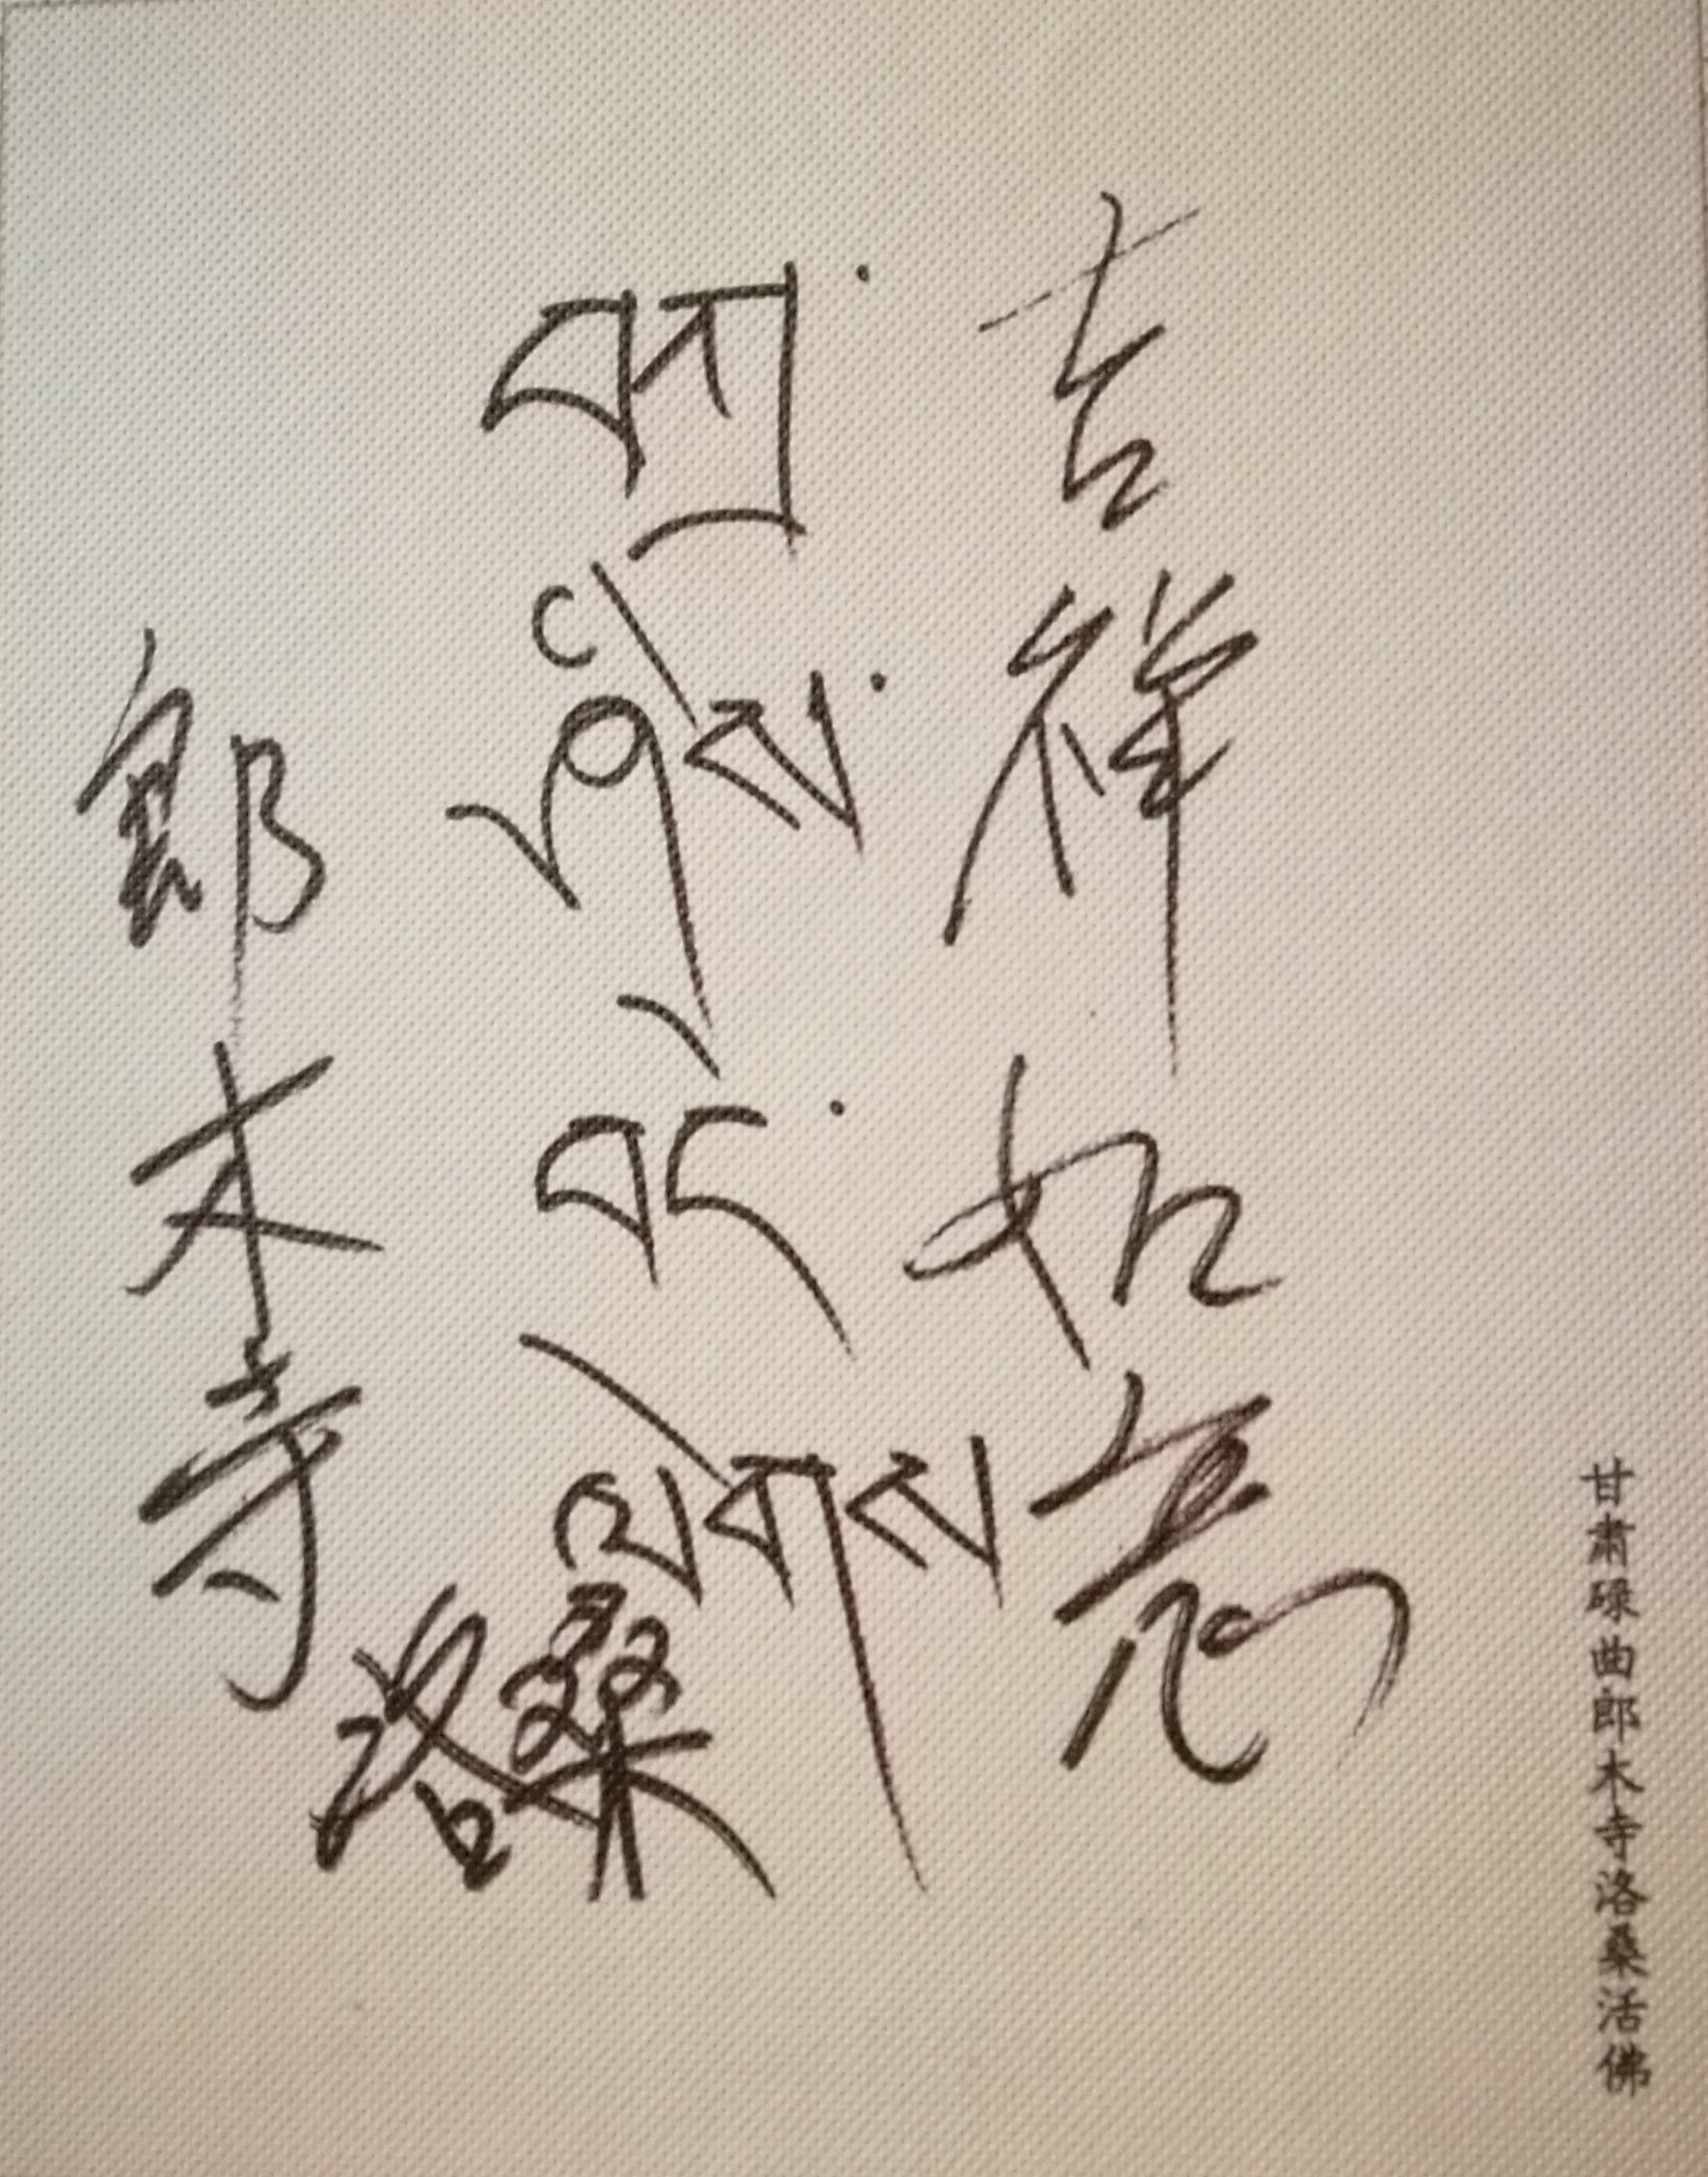 甘肃碌曲郎木寺洛桑活佛
吉祥如意
བཀྲ་
ཤིས་
བདེ་
ལེགས
郎木寺
洛桑